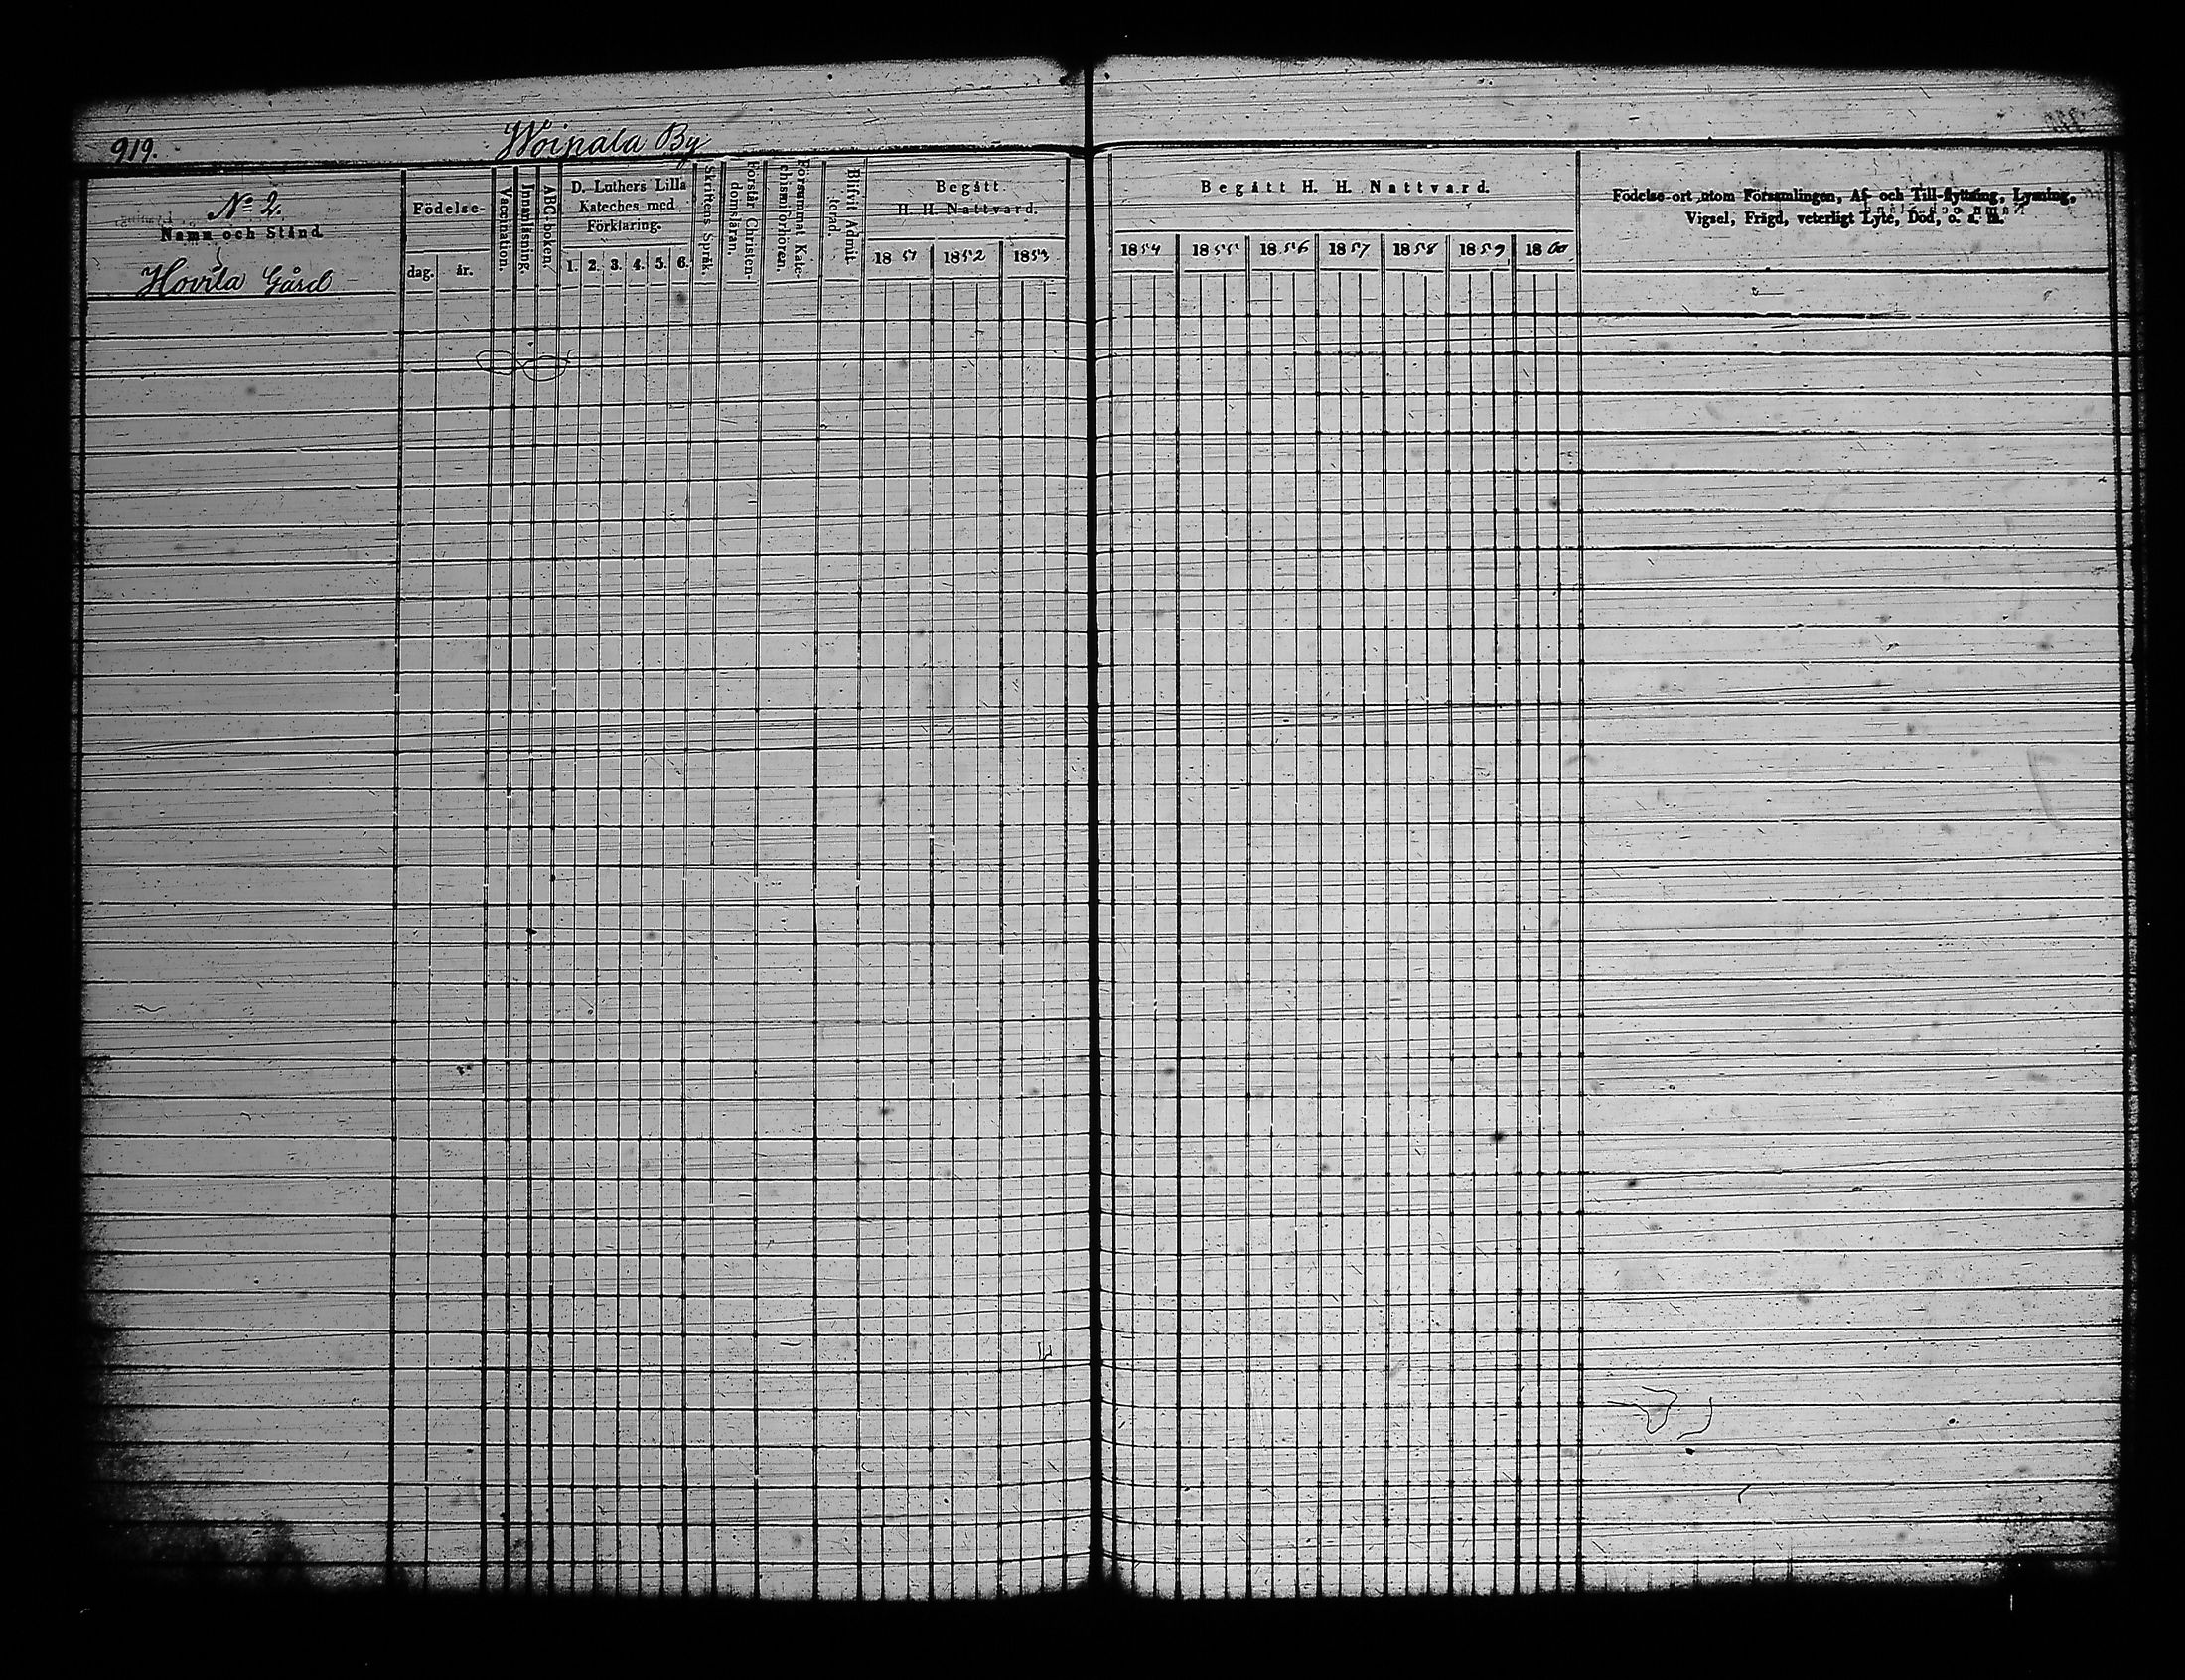 919.
Woipala By
No 2.
Namn och Stånd.
Hovila Gård
Födelse-
dag.
år.
Vaccination.
Innanläsning.
ABC-boken.
D. Luthers Lilla
Kateches med
Förklaring.
1. 2. 3. 4. 5. 6.
Skriftens Språk.
Förstår Christen-
domsläran.
Försummat Kate-
chismiförhören.
Blifvit Admit-
terad.
Begått
H. H. Nattvard.
1851 1852 1853
Begått H. H. Nattvard.
1854 1855 1856 1857 1858 1859 1860
Födelse-ort utom Församlingen, Af- och Till-flyttning, Lysning,
Vigsel, Frägd, veterligt Lyte, Död, o. a. m.